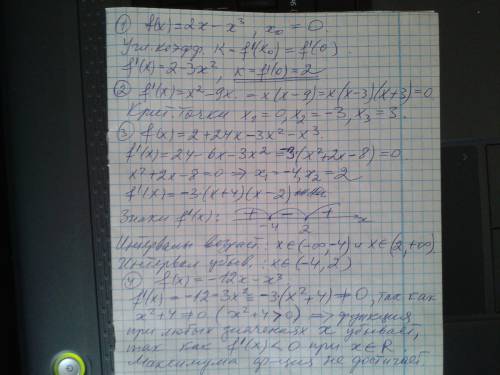 ① f(x)=2x-x³, x₀=0.
Угл. коэфф. k=f'(x₀)=f'(0)
f'(x)=2-3x², k=f'(0)=2
② f'(x)=x²-9x. = x(x-9)=x(x-3)(x+3)=0
Крит. точки x₁=0, x₂=-3, x₃=3.
③ f(x)=2+24x-3x²-x³.
f'(x)=24-6x-3x²=-3(x²+2x-8)=0
x²+2x-8=0 ⇒ x₁=-4, x₂=2
f'(x)=-3(x+4)(x-2)
Знаки f'(x): + - + x
-4 2
Интервалы возраст.: x∈(-∞,-4) и x∈(2,+∞)
Интервал убыв.: x∈(-4,2)
④ f(x)=-12x-x³
f'(x)=-12-3x²=-3(x²+4)≠0, так как
x²+4≠0 (x²+4>0) ⇒ функция
при любых значениях x убывает,
так как f'(x)<0 при x∈R.
Максимума ф-ция не достигает.